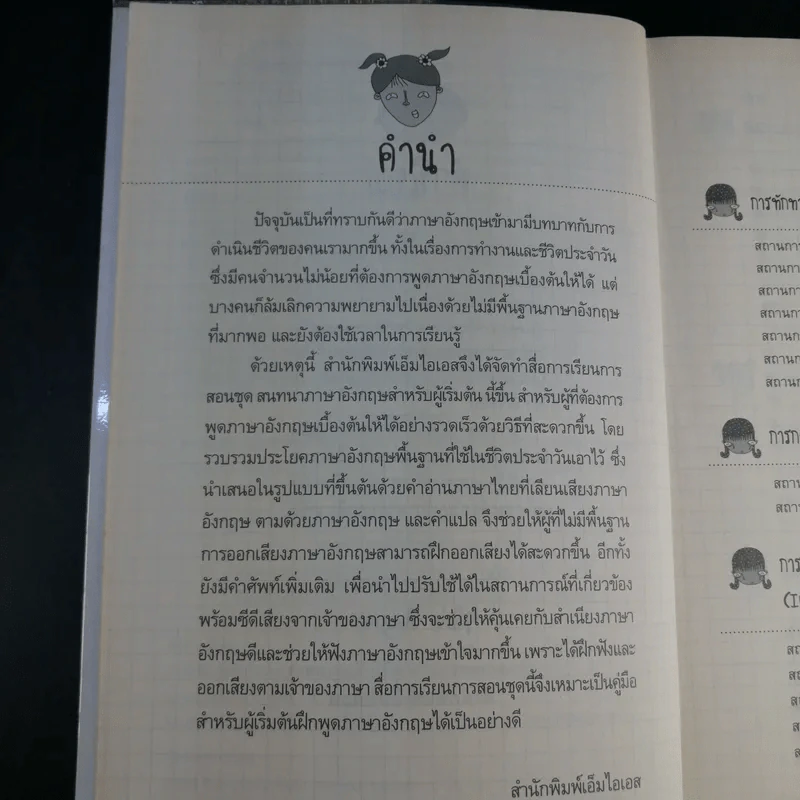 คำนำ
ปัจจุบันเป็นที่ทราบกันดีว่าภาษาอังกฤษเข้ามามีบทบาทกับการ
ดำเนินชีวิตของคนเรามากขึ้น ทั้งในเรื่องการทำงานและชีวิตประจำวัน
ซึ่งมีคนจำนวนไม่น้อยที่ต้องการพูดภาษาอังกฤษเบื้องต้นให้ได้ แต่
บางคนก็ล้มเลิกความพยายามไปเนื่องด้วยไม่มีพื้นฐานภาษาอังกฤษ
ที่มากพอ และยังต้องใช้เวลาในการเรียนรู้
ด้วยเหตุนี้ สำนักพิมพ์เอ็มไอเอสจึงได้จัดทำสื่อการเรียนการ
สอนชุด สนทนาภาษาอังกฤษสำหรับผู้เริ่มต้น นี้ขึ้น สำหรับผู้ที่ต้องการ
พูดภาษาอังกฤษเบื้องต้นให้ได้อย่างรวดเร็วด้วยวิธีที่สะดวกขึ้น โดย
รวบรวมประโยคภาษาอังกฤษพื้นฐานที่ใช้ในชีวิตประจำวันเอาไว้ ซึ่ง
นำเสนอในรูปแบบที่ขึ้นต้นด้วยคำอ่านภาษาไทยที่เลียนเสียงภาษา
อังกฤษ ตามด้วยภาษาอังกฤษ และคำแปล จึงช่วยให้ผู้ที่ไม่มีพื้นฐาน
การออกเสียงภาษาอังกฤษสามารถฝึกออกเสียงได้สะดวกขึ้น อีกทั้ง
ยังมีคำศัพท์เพิ่มเติม เพื่อนำไปปรับใช้ได้ในสถานการณ์ที่เกี่ยวข้อง
พร้อมซีดีเสียงจากเจ้าของภาษา ซึ่งจะช่วยให้คุ้นเคยกับสำเนียงภาษา
อังกฤษดีและช่วยให้ฟังภาษาอังกฤษเข้าใจมากขึ้น เพราะได้ฝึกฟังและ
ออกเสียงตามเจ้าของภาษา สื่อการเรียนการสอนชุดนี้จึงเหมาะเป็นคู่มือ
สำหรับผู้เริ่มต้นฝึกพูดภาษาอังกฤษได้เป็นอย่างดี
สำนักพิมพ์เอ็มไอเอส
การทักทา
สถานการ
สถานกา
สถานกา
สถานกา
สถานกา
สถานกา
สถานกา
การก
สถาน
สถาน
การ
(I
สถ
สถ
ส
ส
ส